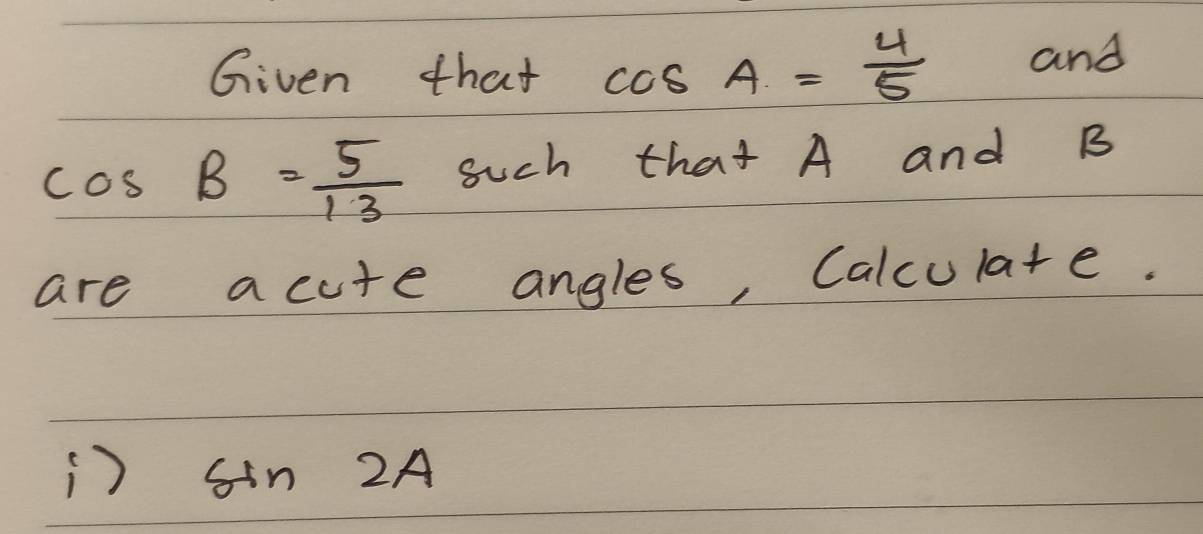 Given that cos A = 4/5 and
cos B = 5/13 such that A and B
are acute angles, Calculate.
i) sin 2A